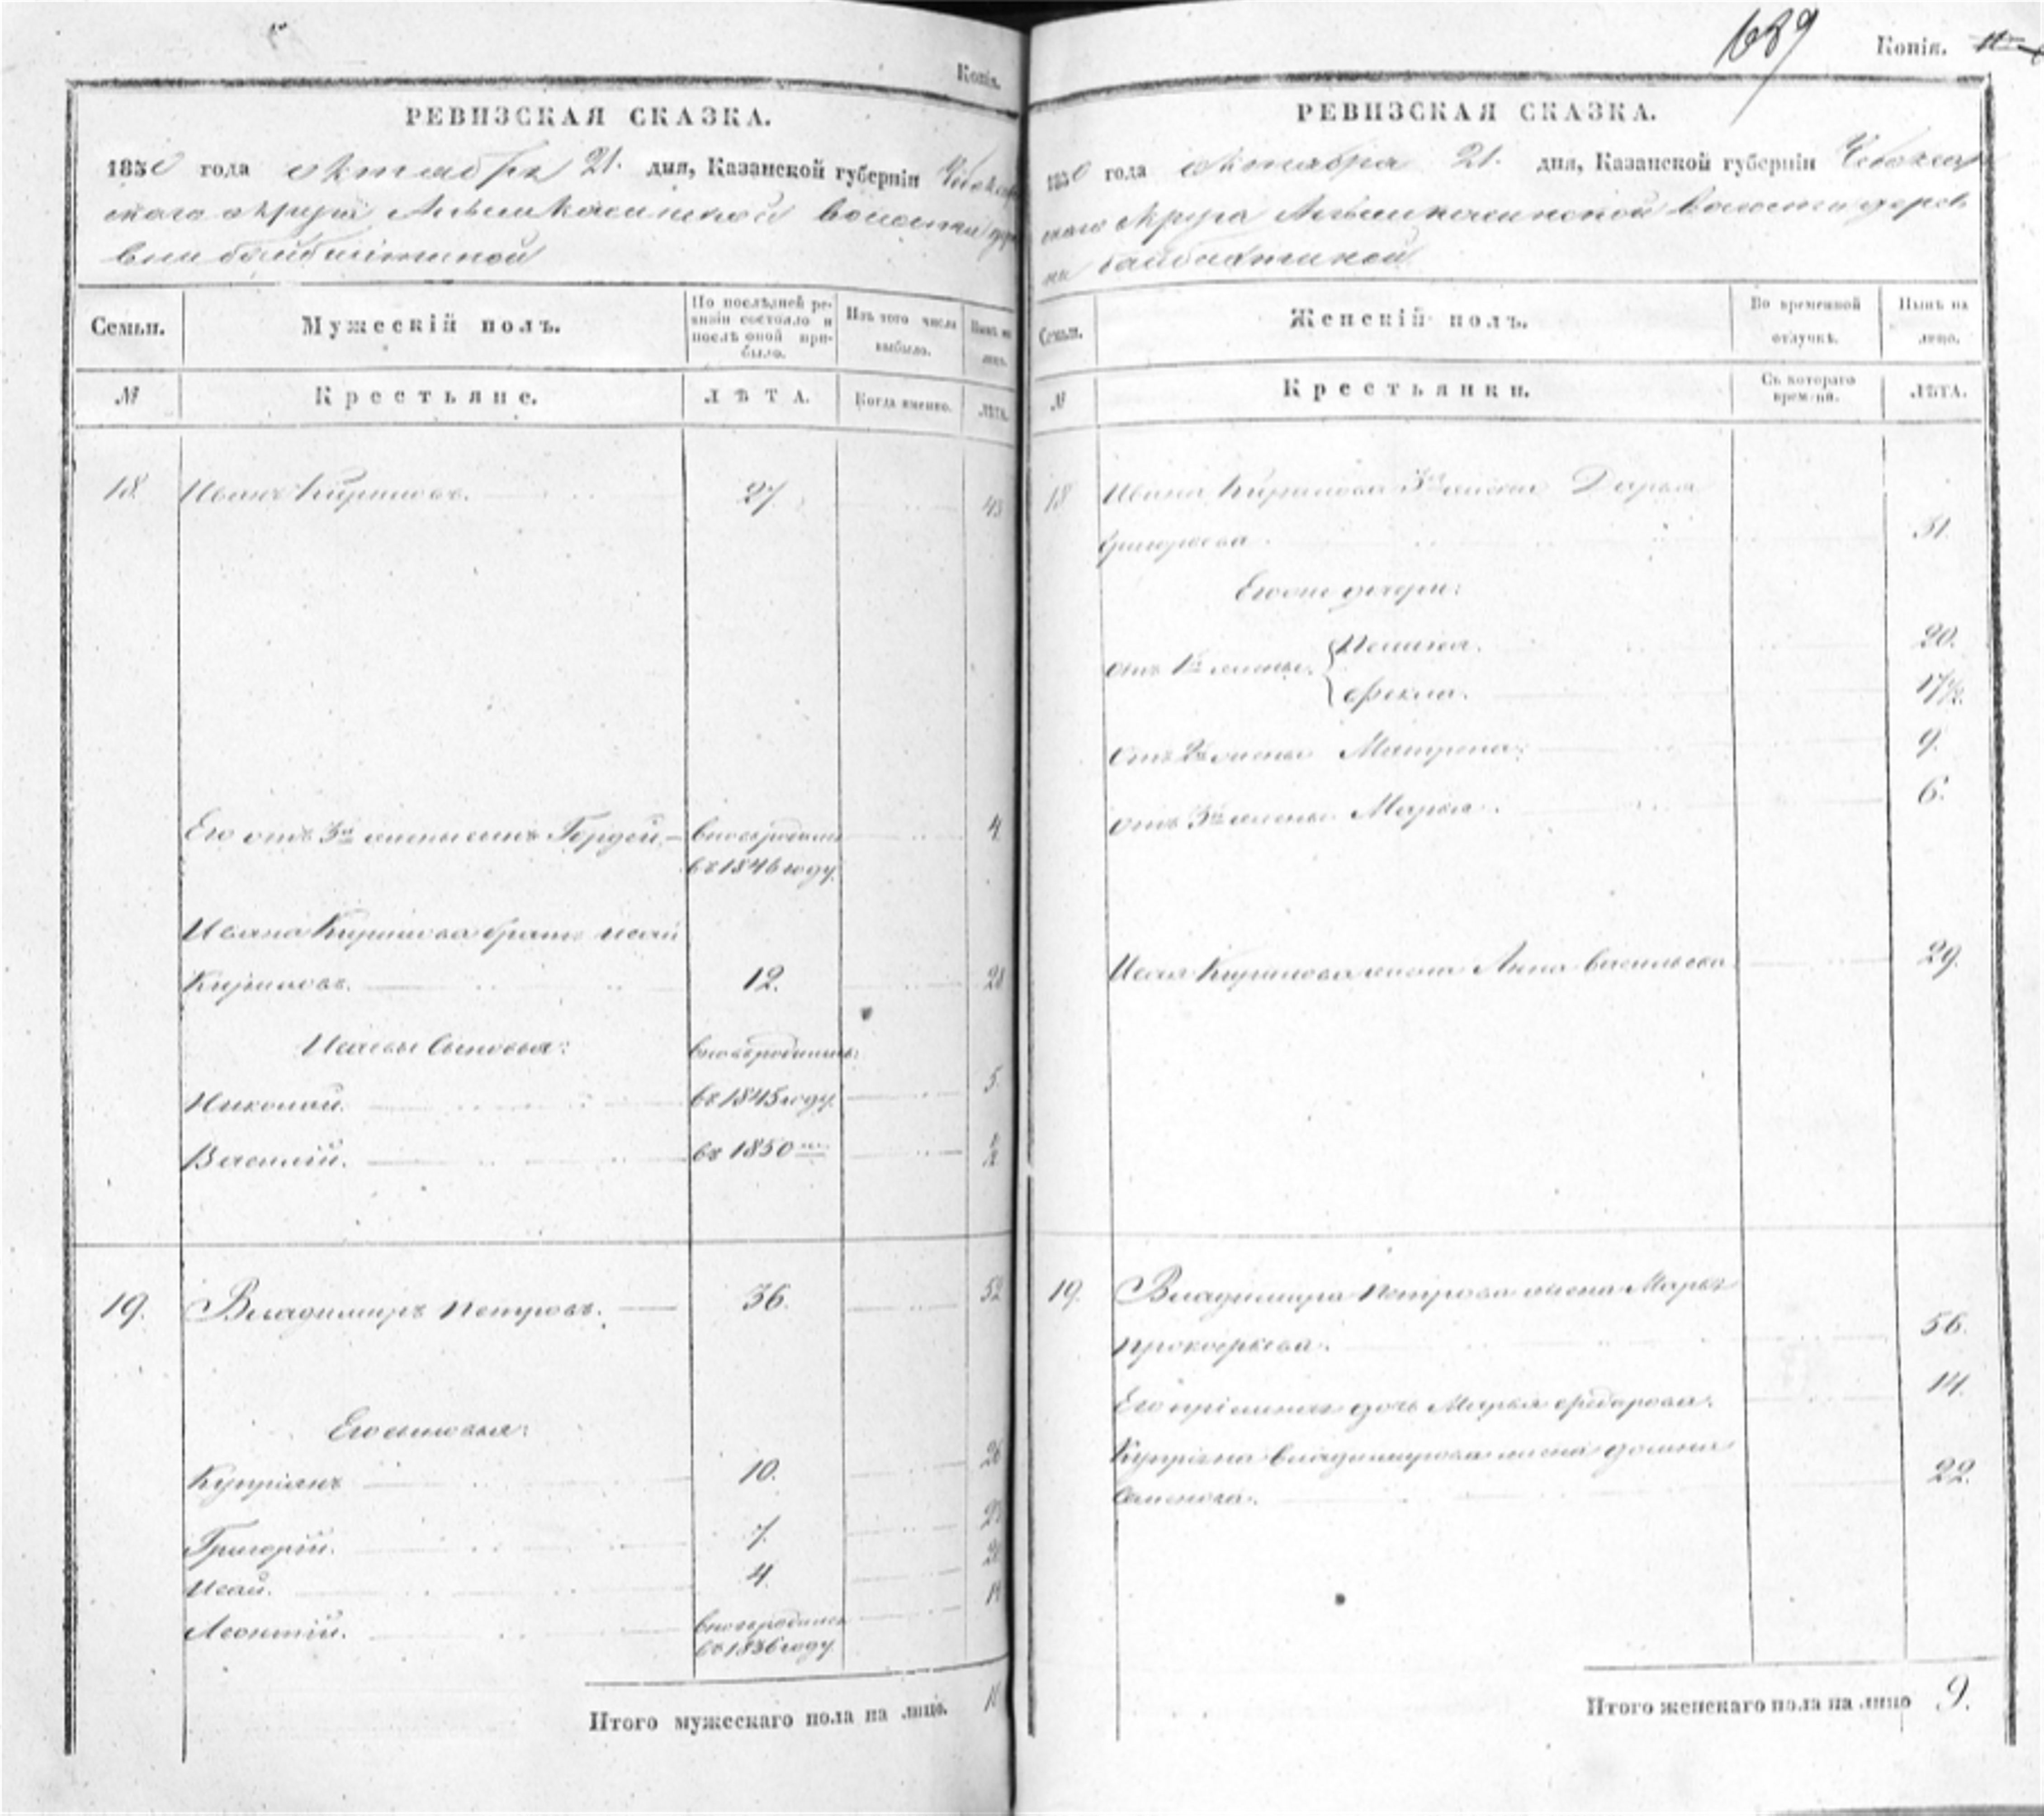 Копія.
РЕВИЗСКАЯ СКАЗКА.
1850 года октября 21. дня, Казанской губерніи Чебоксар
скаго округа волости дере
вни байбахтиной
Семьи.
Мужескій полъ.
По послѣдней ре-
визіи состояло и
послѣ оной при-
было.
Изъ того числа
выбыло.
Нынѣ на
лицо.
№
Крестьяне.
ЛѢТА.
Когда именно.
ЛѢТА.
18. Иванъ Кириловъ. 27. 43
Его отъ 3й жены сынъ Гордей. вновь родился 4
въ 1846 году.
Ивана Кирилова братъ Исай
Кириловъ. 12. 28
Исаевы сыновья: вновь родились:
Николай. въ 1845 году. 5.
Василій. въ 1850 1/2
19. Владимиръ Петровъ. 36. 52
Его сыновья:
Купріянъ 10. 26
Григорій. 7. 23
Исай. 4. 20
Леонтій. вновь родился 14
въ 1836 году
Итого мужескаго пола на лицо. 11
689
Копія.
РЕВИЗСКАЯ СКАЗКА.
1850 года октября 21. дня, Казанской губерніи Чебоксар
скаго округа волости дерев
ни байбахтиной
Семьи.
Женскій полъ.
Во временной
отлучкѣ.
Нынѣ на
лицо.
№
Крестьянки.
Съ котораго
времени.
ЛѢТА.
18 Ивана Кирилова 3я жена Дарья
Григорьева. 31.
Его дочери:
отъ 1й жены. Пелагея. 20.
Фекла. 17 1/2.
отъ 2й жены Матрена. 9.
отъ 3й жены Марья. 6.
Исая Кирилова жена Анна Васильева 29.
19. Владимира Петрова жена Марья
Прокофьева. 56.
Его пріемная дочь Марья Федорова. 14.
Купріяна Владимирова жена
Семенова. 22.
Итого женскаго пола на лицо 9.